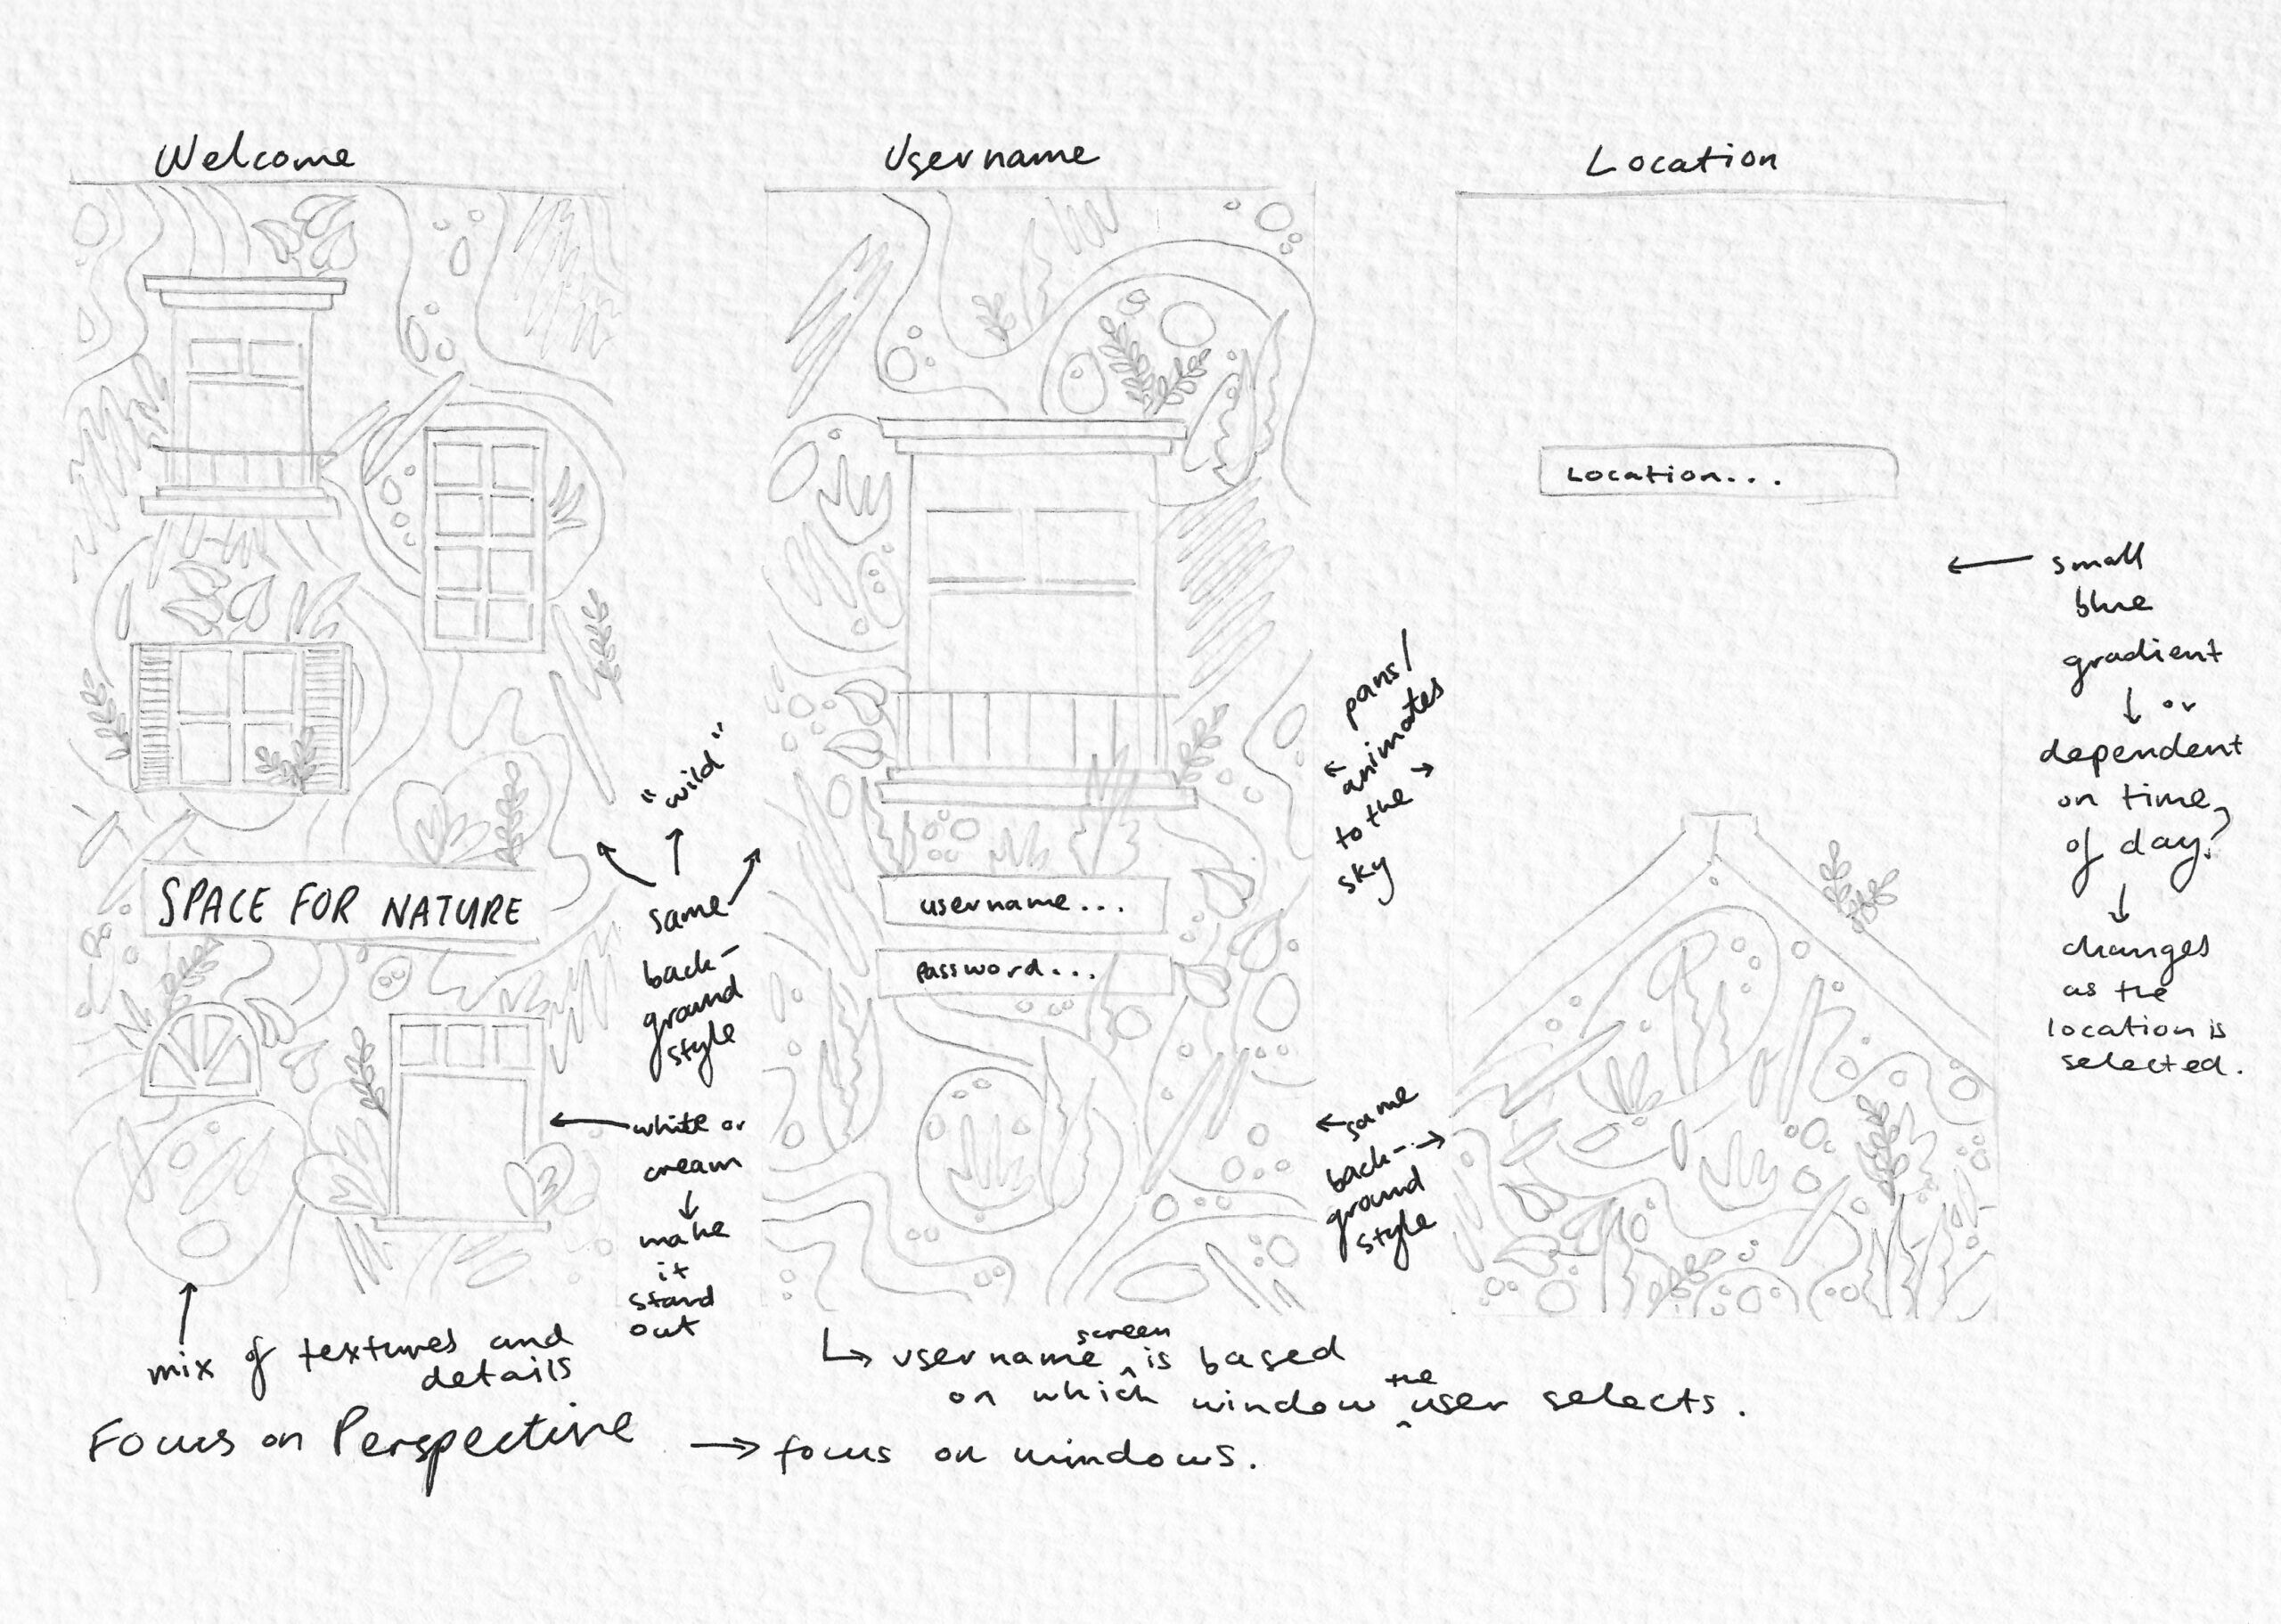 Welcome
SPACE FOR NATURE
"wild"
same
back-
ground
style
white or
cream
make
it
stand
out
mix of textures and
details
Focus on Perspective
focus on windows.
Username
username...
password...
username screen is based
on which window the user selects.
pans/
animates
to the
sky
same
back-
ground
style
Location
Location...
small
blue
gradient
or
dependent
on time
of day?
changes
as the
location is
selected.